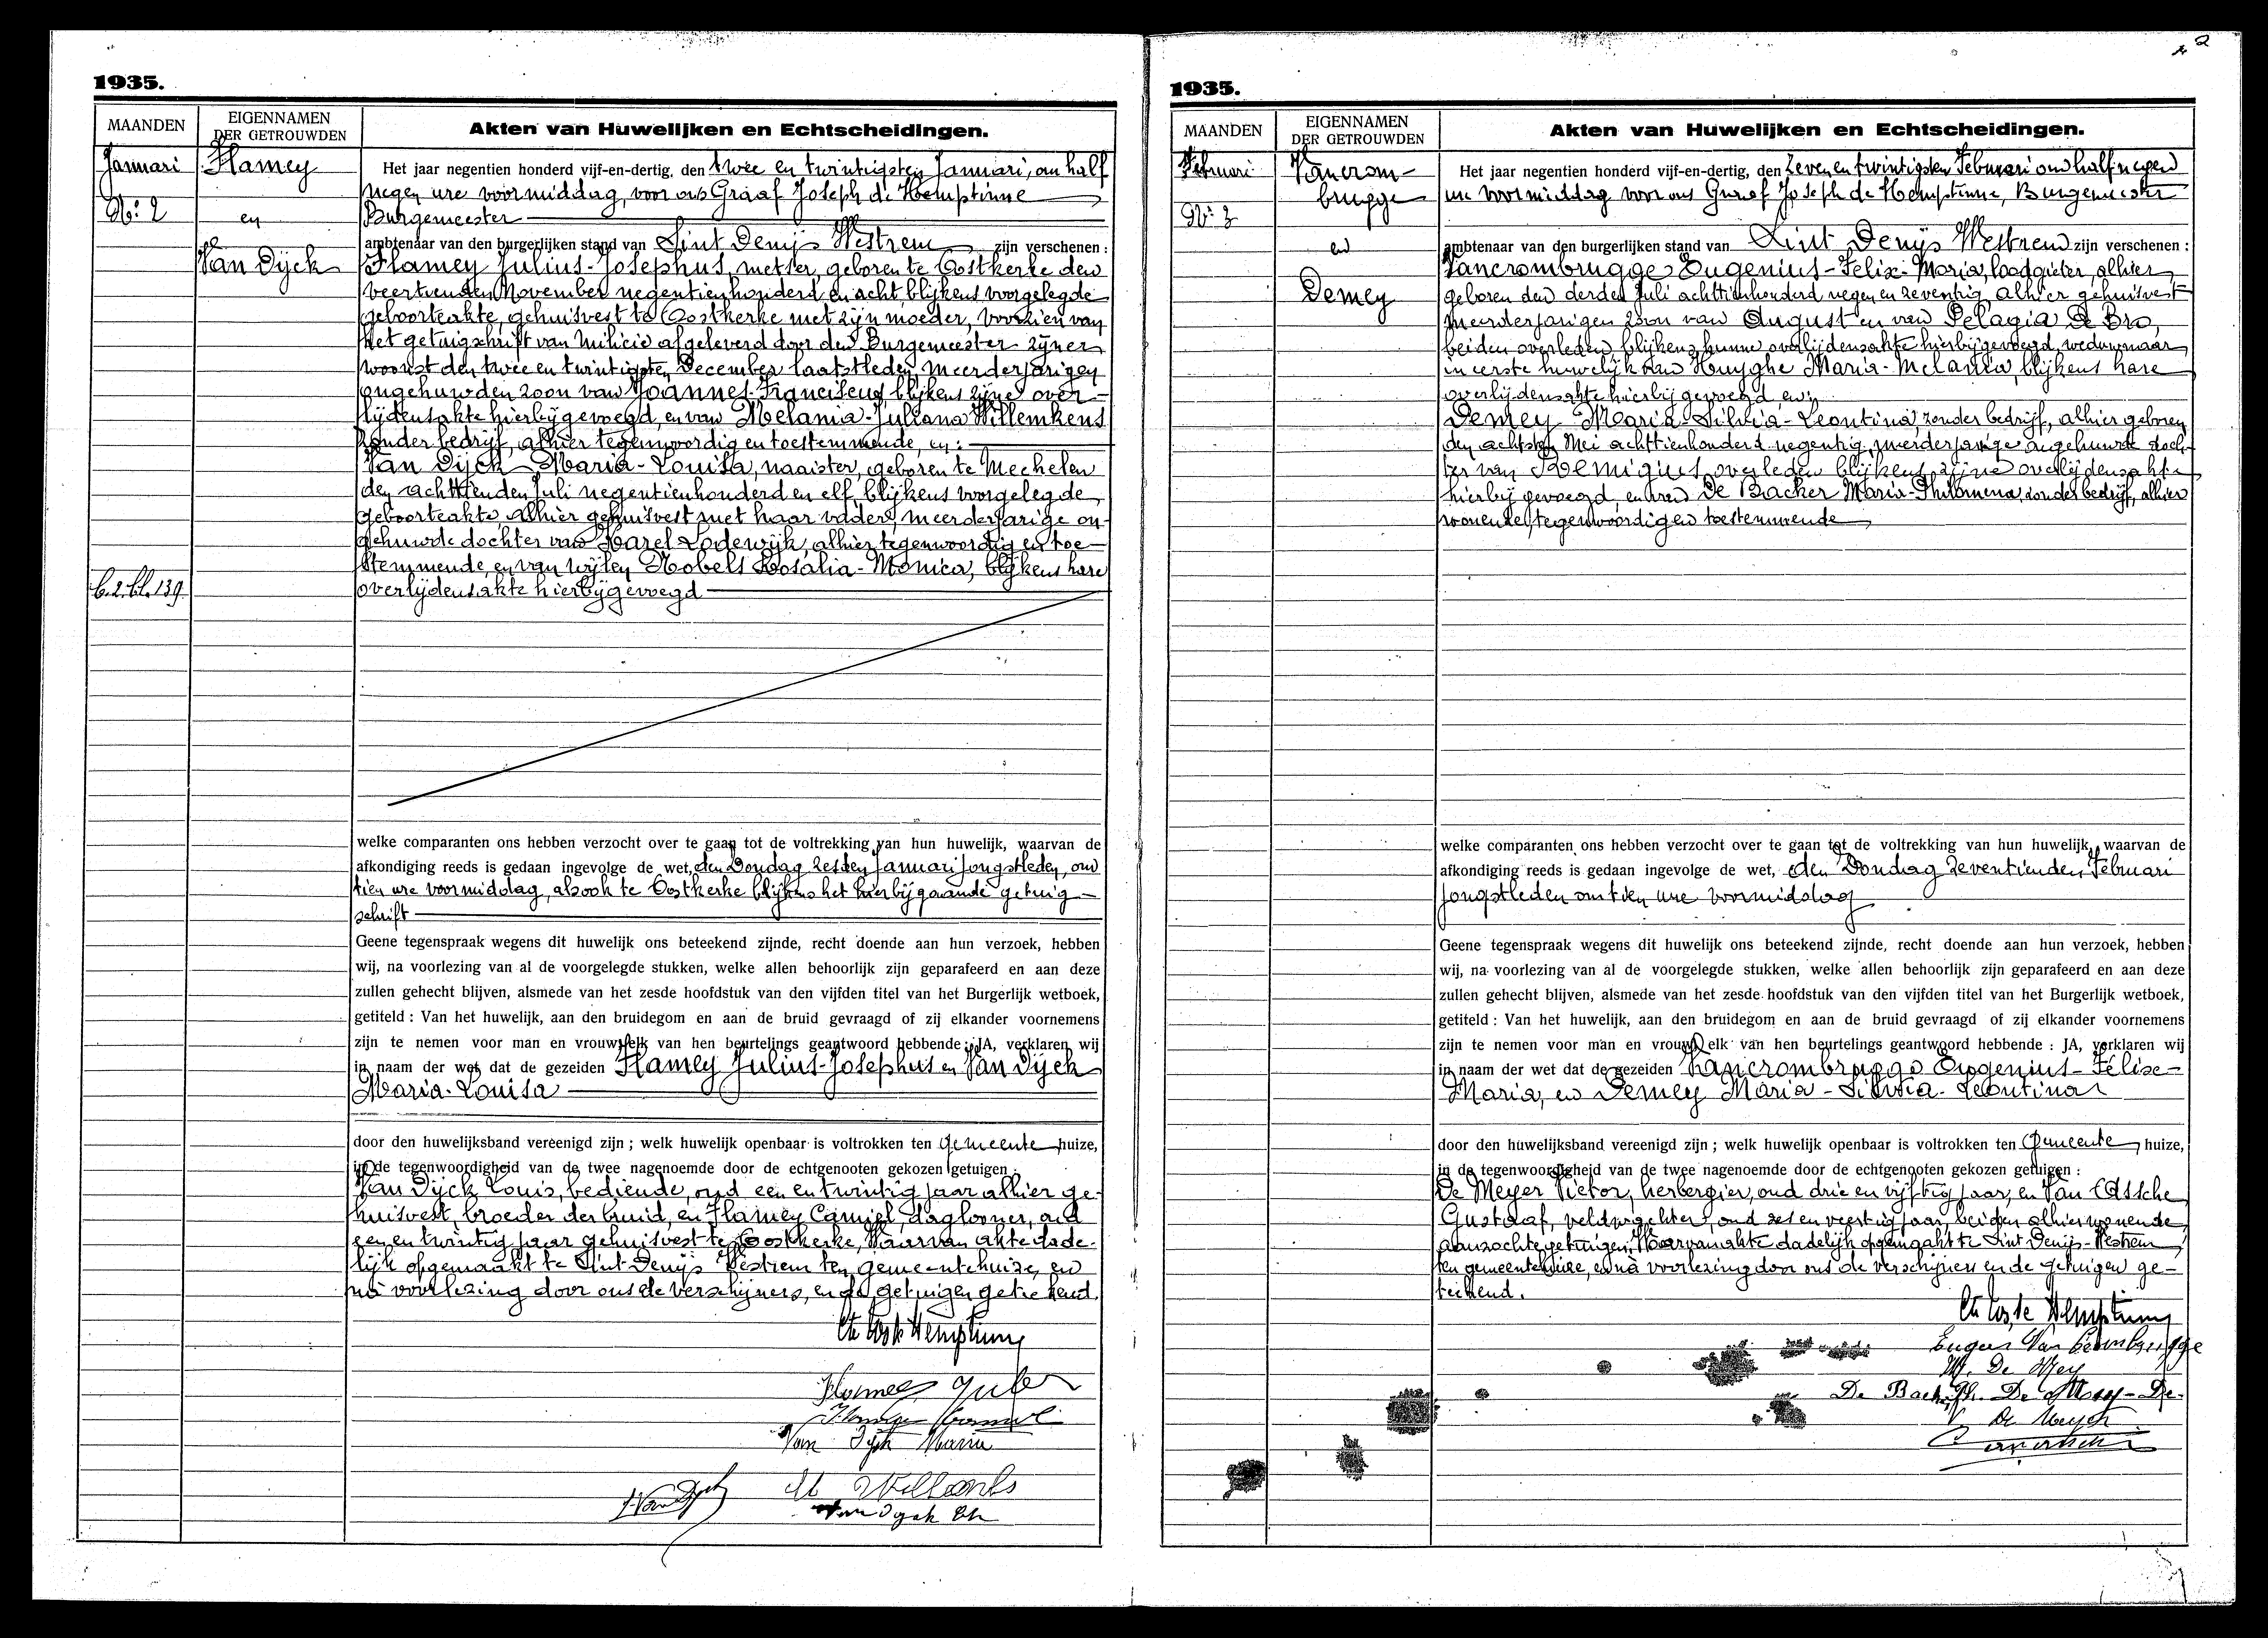 1935.
MAANDEN
EIGENNAMEN
DER GETROUWDEN
Akten van Huwelijken en Echtscheidingen.
Januari
N.º 2
Flamey
en
Van Dijck
b.2.bl.139
Het jaar negentien honderd vijf-en-dertig, den twee en twintigsten Januari, om half
negen ure voormiddag, voor ons Graaf Joseph de Hemptinne
Burgemeester
ambtenaar van den burgerlijken stand van Sint Denijs Westrem zijn verschenen :
Flamey Julius-Josephus, metser, geboren te Oostkerke den
veertienden November negentienhonderd en acht, blijkens voorgelegde
geboorteakte, gehuisvest te Oostkerke met zijn moeder, voorzien van
het getuigschrift van Milicie afgeleverd door den Burgemeester zijner
woonst den twee en twintigsten December laatstleden, meerderjarigen
ongehuwden zoon van Joannes-Franciscus blijkens zijne over-
lijdensakte hierbijgevoegd, en van Melania-Juliana Willemkens
zonder bedrijf, alhier tegenwoordig en toestemmende, en :
Van Dijck Maria-Louisa, naaister, geboren te Mechelen
den achttienden Juli negentienhonderd en elf, blijkens voorgelegde
geboorteakte, alhier gehuisvest met haar vader, meerderjarige on-
gehuwde dochter van Karel Lodewijk, alhier tegenwoordig en toe-
stemmende, en van wijlen Nobels Rosalia-Monica, blijkens hare
overlijdensakte hierbijgevoegd
welke comparanten ons hebben verzocht over te gaan tot de voltrekking van hun huwelijk, waarvan de
afkondiging reeds is gedaan ingevolge de wet, den Zondag zesden Januari jongstleden, om
tien ure voormiddag, alsook te Oostkerke blijkens het hierbijgaande getuig-
schrift
Geene tegenspraak wegens dit huwelijk ons beteekend zijnde, recht doende aan hun verzoek, hebben
wij, na voorlezing van al de voorgelegde stukken, welke allen behoorlijk zijn geparafeerd en aan deze
zullen gehecht blijven, alsmede van het zesde hoofdstuk van den vijfden titel van het Burgerlijk wetboek,
getiteld : Van het huwelijk, aan den bruidegom en aan de bruid gevraagd of zij elkander voornemens
zijn te nemen voor man en vrouw, elk van hen beurtelings geantwoord hebbende : JA, verklaren wij
in naam der wet dat de gezeiden Flamey Julius-Josephus en Van Dijck
Maria-Louisa
door den huwelijksband vereenigd zijn ; welk huwelijk openbaar is voltrokken ten gemeente huize,
in de tegenwoordigheid van de twee nagenoemde door de echtgenooten gekozen getuigen :
Van Dijck Louis, bediende, oud een en twintig jaar alhier ge-
huisvest, broeder der bruid, en Flamey Camiel, dagloner, oud
een en twintig jaar gehuisvest te Oostkerke, Waarvan akte dade-
lijk opgemaakt te Sint Denijs Westrem ten gemeentehuize, en
na voorlezing door ons de verschijners, en de getuigen geteekend.
Cte Jos de Hemptinne
Van Dyck Maria
Van Dyck
1935.
MAANDEN
EIGENNAMEN
DER GETROUWDEN
Akten van Huwelijken en Echtscheidingen.
Februari
N.º 3
Vancrom-
brugge
en
Demey
Het jaar negentien honderd vijf-en-dertig, den zeven en twintigsten Februari om half negen
ure voormiddag voor ons Graaf Joseph de Hemptinne, Burgemeester
ambtenaar van den burgerlijken stand van Sint Denijs Westrem zijn verschenen :
Vancrombrugge Eugenius-Felix-Maria, loodgieter, alhier
geboren den derden Juli achttienhonderd negen en zeventig, alhier gehuisvest
meerderjarigen zoon van August en van Pelagia De Bro,
beiden overleden blijkens hunne overlijdensakte hierbijgevoegd, weduwnaar
in eerste huwelijk van Huyghe Maria-Melania, blijkens hare
overlijdensakte hierbij gevoegd, en :
Demey Maria-Silvia-Leontina, zonder bedrijf, alhier geboren
den achtsten Mei achttienhonderd negentig, meerderjarige ongehuwde doch-
ter van Remigius, overleden blijkens zijne overlijdensakte
hierbij gevoegd, en van De Backer Maria-Philomena, zonder bedrijf, alhier
wonende, tegenwoordig en toestemmende
welke comparanten ons hebben verzocht over te gaan tot de voltrekking van hun huwelijk, waarvan de
afkondiging reeds is gedaan ingevolge de wet, den Zondag zeventienden Februari
jongstleden om tien ure voormiddag
Geene tegenspraak wegens dit huwelijk ons beteekend zijnde, recht doende aan hun verzoek, hebben
wij, na voorlezing van al de voorgelegde stukken, welke allen behoorlijk zijn geparafeerd en aan deze
zullen gehecht blijven, alsmede van het zesde hoofdstuk van den vijfden titel van het Burgerlijk wetboek,
getiteld : Van het huwelijk, aan den bruidegom en aan de bruid gevraagd of zij elkander voornemens
zijn te nemen voor man en vrouw, elk van hen beurtelings geantwoord hebbende : JA, verklaren wij
in naam der wet dat de gezeiden Vancrombrugge Eugenius-Felix-
Maria, en Demey Maria-Silvia-Leontina
door den huwelijksband vereenigd zijn ; welk huwelijk openbaar is voltrokken ten Gemeente huize,
in de tegenwoordigheid van de twee nagenoemde door de echtgenooten gekozen getuigen :
De Meyer Victor, herbergier, oud drie en vijftig jaar, en Van Assche
Gustaaf, veldwachter, oud zes en veertig jaar, beiden alhier wonende,
aanzochte getuigen, Waarvan akte dadelijk opgemaakt te Sint Denijs-Westrem,
ten gemeentehuize, en na voorlezing door ons de verschijners en de getuigen ge-
teekend.
Cte Jos de Hemptinne
V. De Meyer